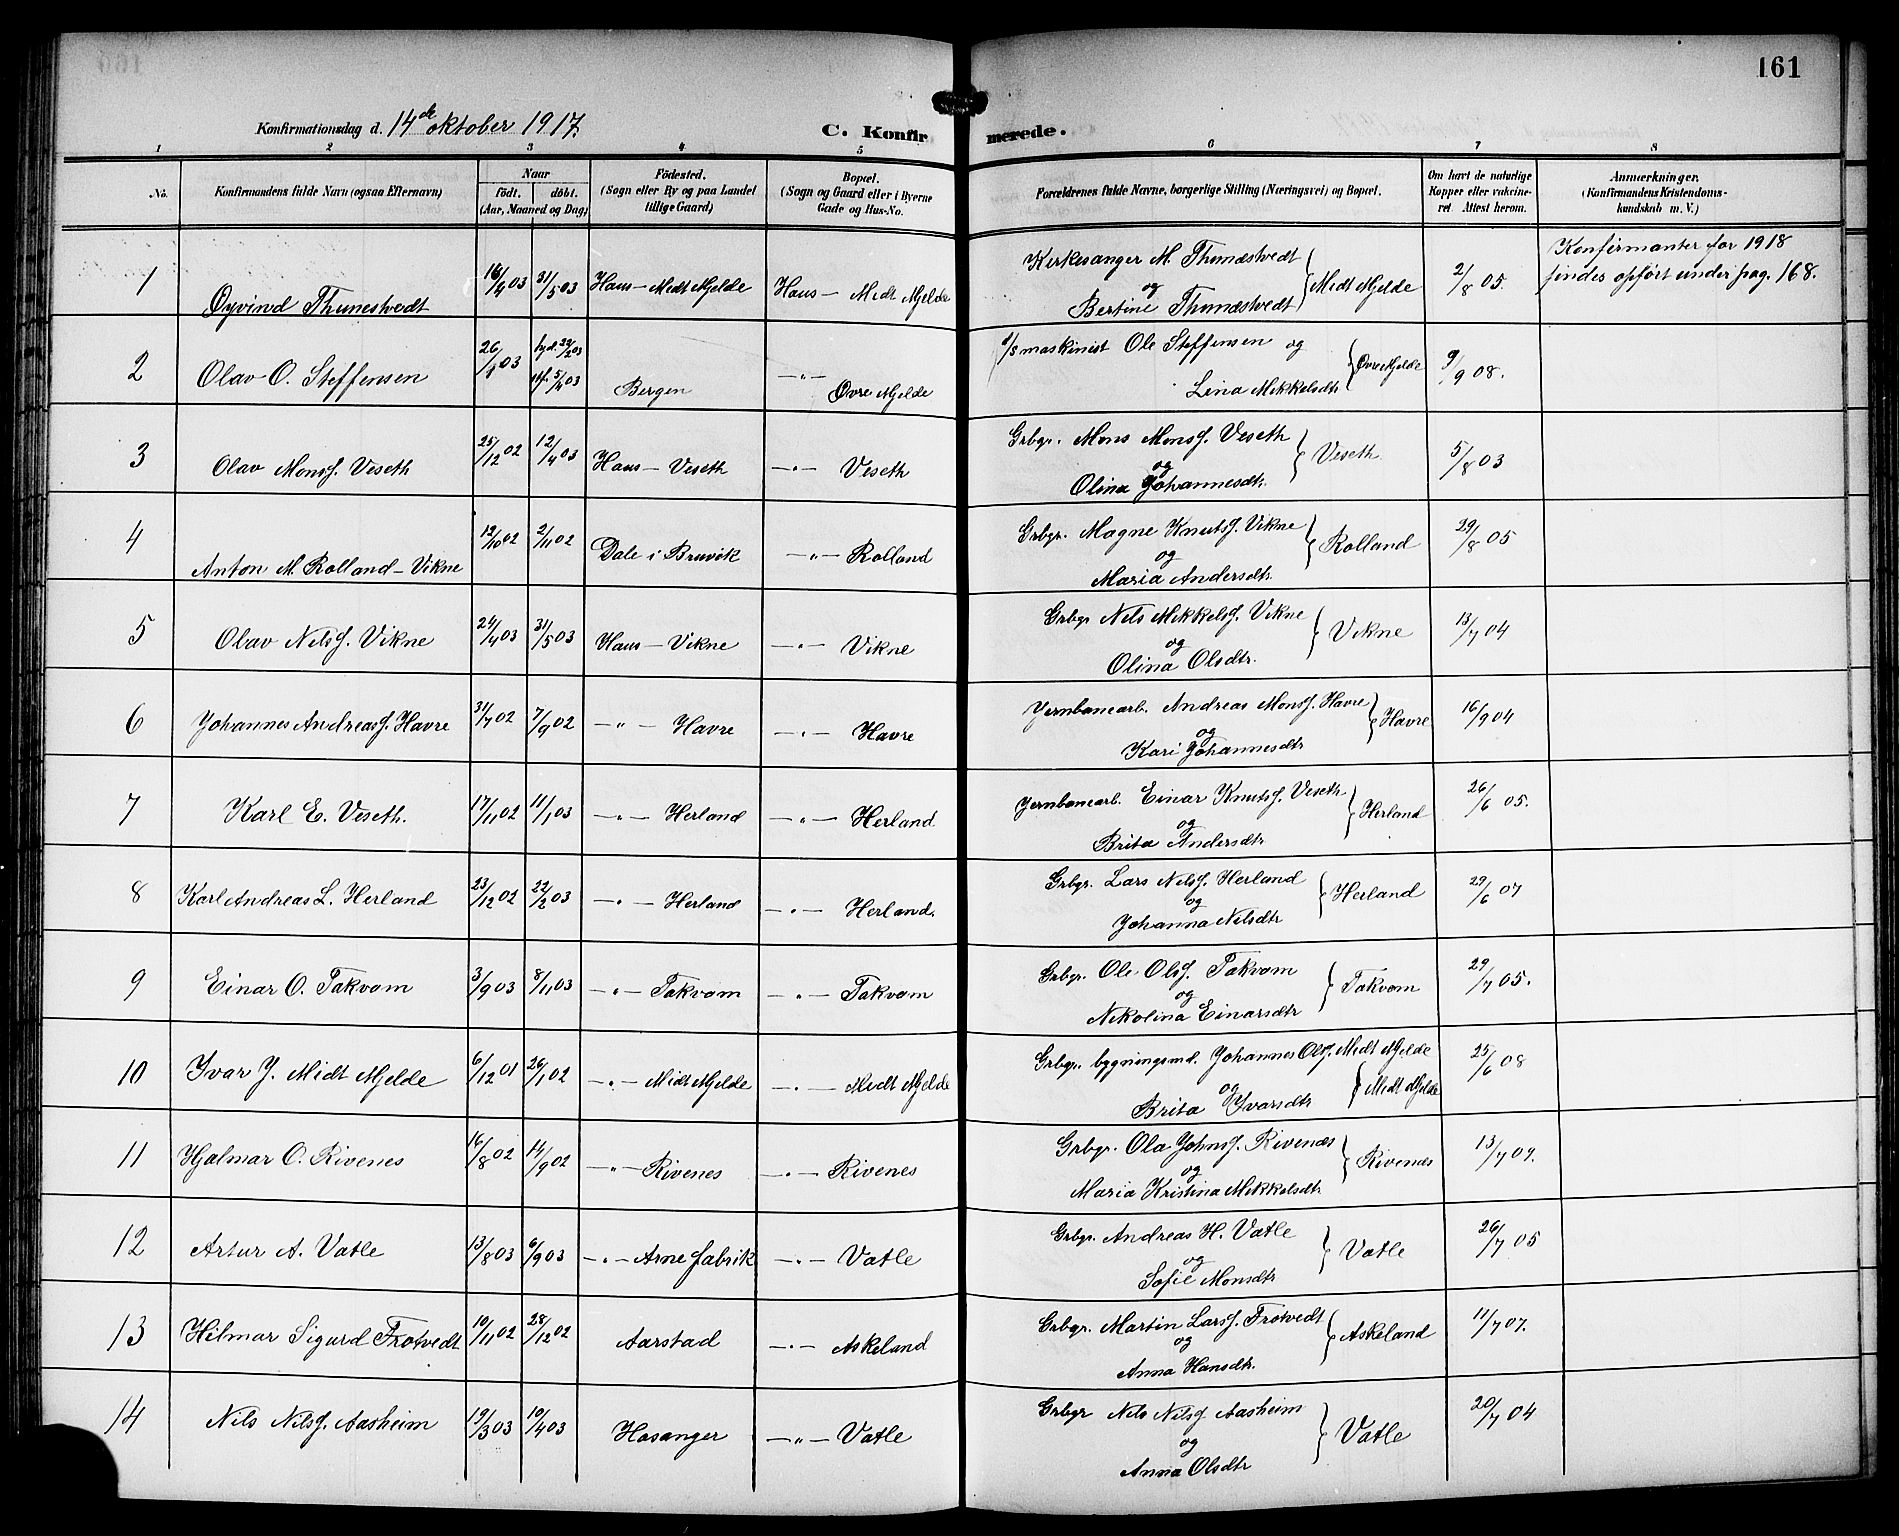 161
Konfirmationsdag d. 14de oktober 1917.
C. Konfirmerede.
1 2 3 4 5 6 7 8
No.
Konfirmandens fulde Navn (ogsaa Efternavn)
Naar
født. døbt.
(Aar, Maaned og Dag)
Fødested.
(Sogn eller By og paa Landet
tillige Gaard)
Bopæl.
(Sogn og Gaard eller i Byerne
Gade og Hus-No.
Forældrenes fulde Navne, borgerlige Stilling (Næringsvei) og Bopæl.
Om havt de naturlige
Kopper eller vakcine-
ret. Attest herom.
Anmærkninger.
(Konfirmandens Kristendoms-
kundskab m. V.)
Konfirmanter for 1918
findes opført under pag. 168.
1 Øyvind Thunestvedt 16/4 03 31/5 03 Haus – Midt Mjelde Haus – Midt Mjelde
Kirkesanger M. Thunestvedt
og
Bertine Thunestvedt } Midt Mjelde 2/8 05.
2 Olav O. Steffensen 26/1 03 hjd. 29/2 03 stf. 5/4 03 Bergen –"– Øvre Mjelde
D/S maskinist Ole Steffensen og
Lina Mikkelsdtr. } Øvre Mjelde 9/9 08.
3 Olav Monsf. Veseth 25/12 02 12/4 03 Haus – Veseth –"– Veseth
Grbgr. Mons Monsf. Veseth
og
Olina Johannesdtr. } Veseth 5/8 03
4 Anton M. Rolland-Vikne 12/10 02 2/11 02 Dale i Bruvik –"– Rolland
Grbgr. Magne Knutsf. Vikne
og
Maria Andersdtr. } Rolland 29/8 05
5 Olav Nilsf. Vikne 24/4 03 31/5 03 Haus – Vikne –"– Vikne
Grbgr Nils Mikkelsf. Vikne
og
Olina Olsdtr. } Vikne 13/7 04
6 Johannes Andreasf. Havre 31/7 02 7/9 02 –"– Havre –"– Havre
Jernbanearb. Andreas Monsf. Havre
og
Kari Johannesdtr } Havre 16/9 04
7 Karl E. Veseth. 17/11 02 11/1 03 –"– Herland –"– Herland
Jernbanearb. Einar Knutsf. Veseth
og
Brita Andersdtr } Herland 26/6 05.
8 Karl Andreas L. Herland 23/12 02 22/2 03 –"– Herland –"– Herland.
Grbgr. Lars Nilsf. Herland
og
Johanna Nilsdtr } Herland 29/6 07
9 Einar O. Takvam 3/9 03 8/11 03 –"– Takvam –"– Takvam
Grbgr. Ole Olsf. Takvam
og
Nikolina Einarsdtr } Takvam 29/7 05.
10 Ivar J. Midt Mjelde 6/12 01 26/1 02 –"– Midt Mjelde –"– Midt Mjelde
Grbgr. bygningsmd. Johannes Olsf. Midt Mjelde
og
Brita Ivarsdtr } Midt Mjelde 25/6 08
11 Hjalmar O. Rivenes 16/8 02 14/9 02 –"– Rivenes –"– Rivenes
Grbgr. Ola Johnsf. Rivenæs
og
Maria Kristina Mikkelsdtr. } Rivenæs 13/7 09.
12 Artur A. Vatle 13/8 03 6/9 03 –"– Arne fabrik –"– Vatle
Grbgr. Andreas H. Vatle
og
Sofie Monsdtr } Vatle 26/7 05
13 Hilmar Sigurd Frotvedt 10/11 02 28/12 02 Aarstad –"– Askeland
Grbgr. Martin Larsf. Frotvedt
og
Anna Hansdtr. } Askeland 11/7 07.
14 Nils Nilsf. Aasheim 19/3 03 10/4 03 Hosanger –"– Vatle
Grbgr Nils Nilsf Aasheim
og
Anna Olsdtr } Vatle 20/7 04